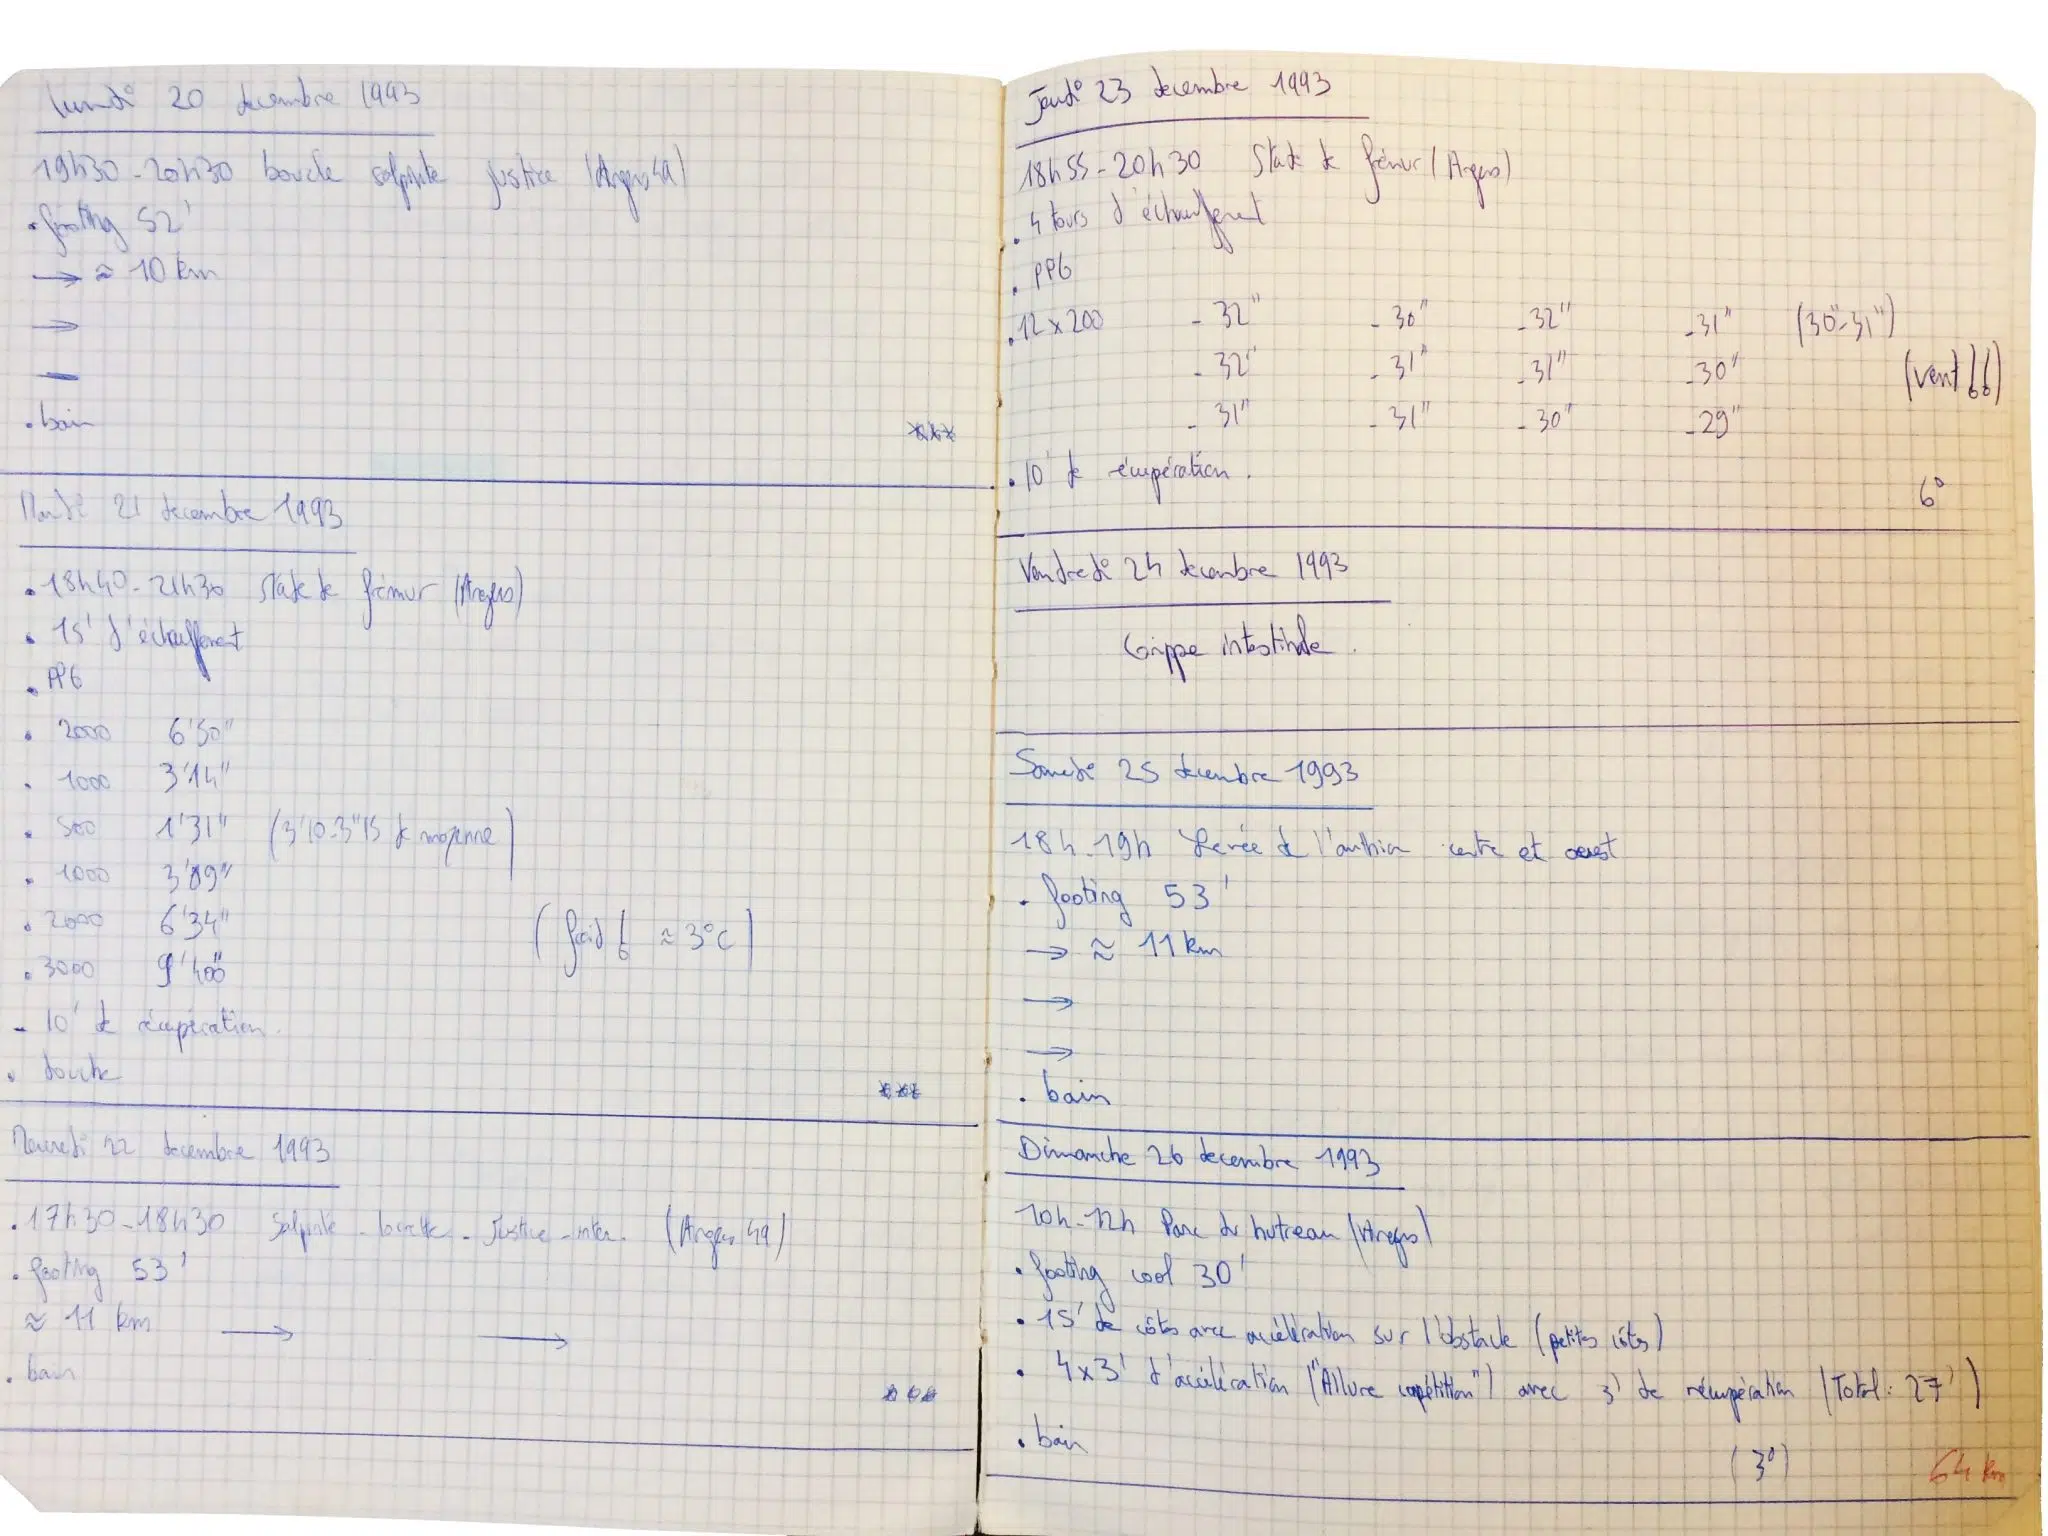 lundi 20 decembre 1993
19h30-20h30 boucle salpinte justice (Angers 49)
. footing 52'
→ ≈ 10 km
→
. bain
***
Mardi 21 decembre 1993
. 18h40-21h30 Stade de frémur (Angers)
. 15' d'échauffement
. PPG
. 2000 6'50"
. 1000 3'14"
. 500 1'31" (3'10-3"15 de moyenne)
. 1000 3'09"
. 2000 6'34"
(froid ≈ 3°C)
. 3000 9'40"
- 10' de récupération.
. douche
***
Mercredi 22 decembre 1993
. 17h30-18h30 Salpinte - - Justice - inter. (Angers 49)
. footing 53'
≈ 11 km → →
. bain
***
Jeudi 23 decembre 1993
18h55-20h30 Stade de frémur (Angers)
. 4 tours d'échauffement
. PPG
. 12 x 200 - 32" - 30" - 32" - 31" (30"-31")
- 32" - 31" - 31" - 30" (vent)
- 31" - 31" - 30" - 29"
. 10' de récupération.
6°
Vendredi 24 decembre 1993
Grippe intestinale.
Samedi 25 decembre 1993
18h-19h Levée de l'authion centre et ouest
. footing 53'
→ ≈ 11 km
→
→
. bain
Dimanche 26 decembre 1993
10h-12h Parc du hutreau (Angers)
. footing cool 30'
. 15' de côtes avec accélération sur l'obstacle (petites côtes)
. 4x3' d'accélération ("Allure compétition") avec 3' de récupération (Total: 27')
. bain
(3°)
64 km